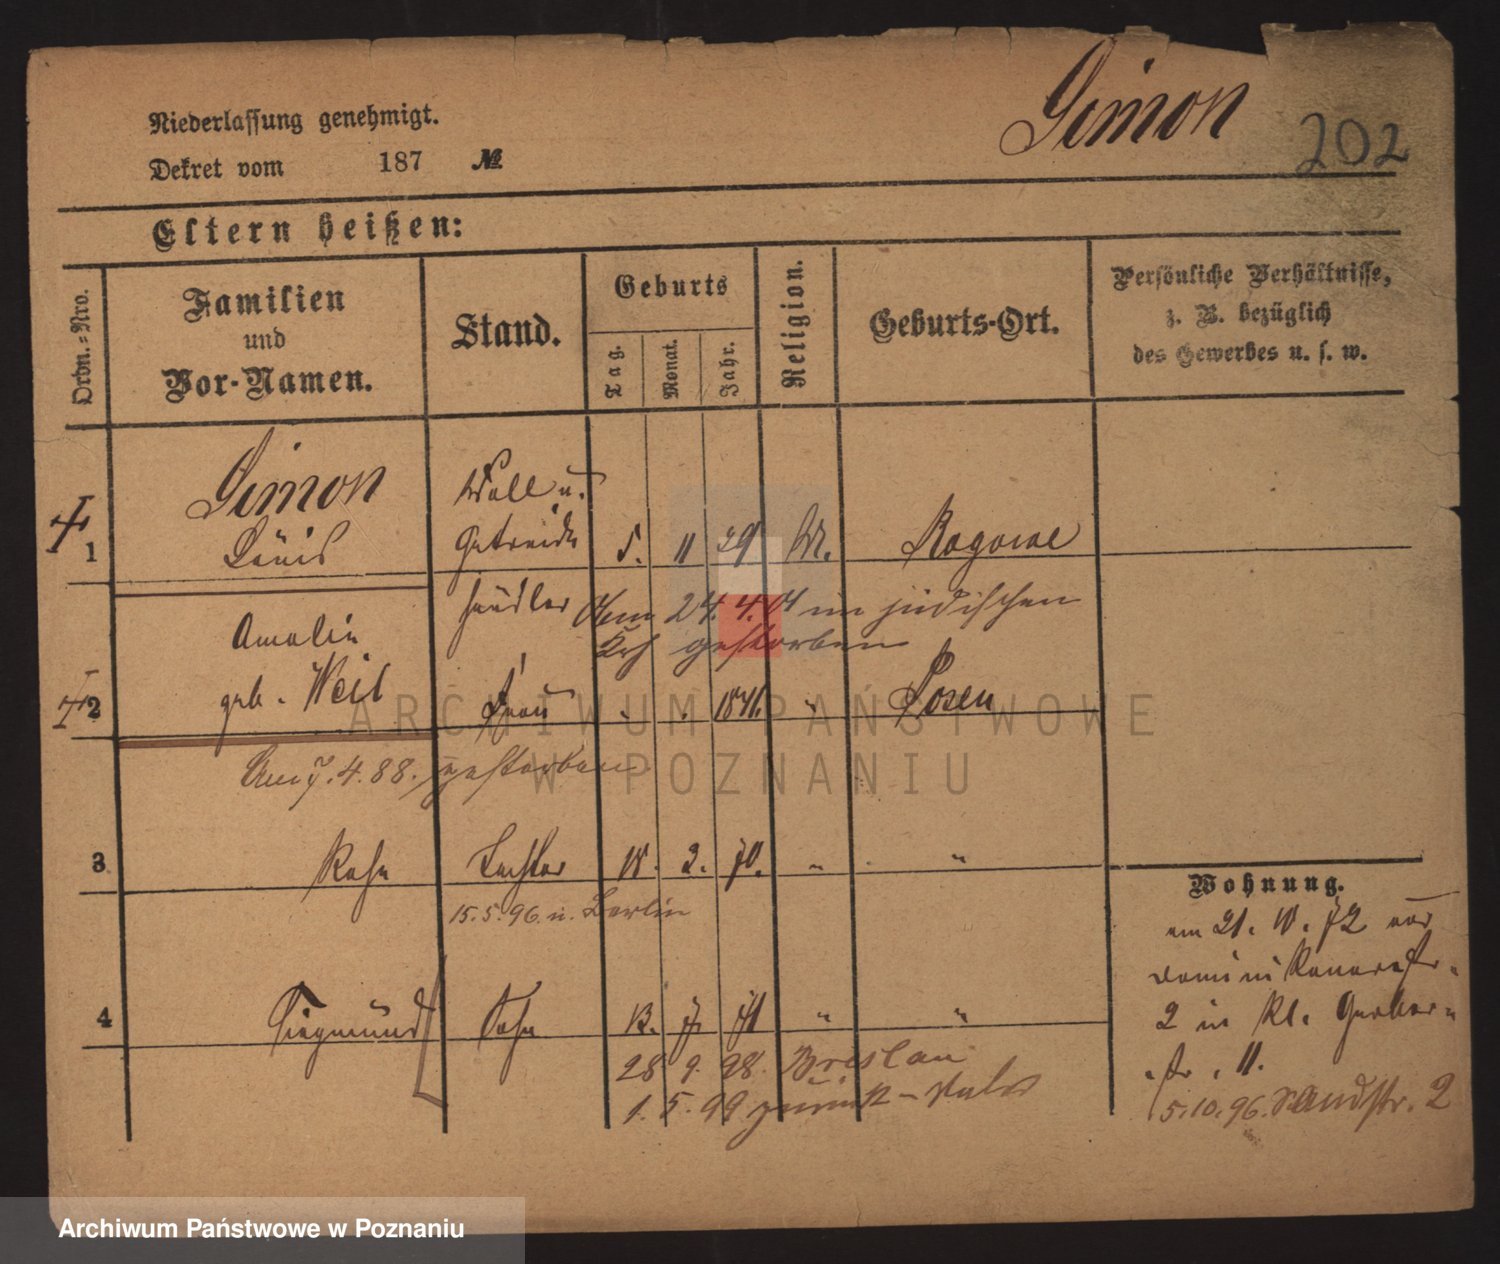 Simon
202
Niederlassung genehmigt.
Dekret vom 187 №
Eltern heißen:
Ordn.-Nro.
Familien
und
Vor-Namen.
Stand.
Geburts
Tag.
Monat.
Jahr.
Religion.
Geburts-Ort.
Persönliche Verhältnisse,
z. B. bezüglich
des Gewerbes u. s. w.
Simon
Wolle u.
1 Louis Getreide 5. 11 29 M. Rogowe
händler
Am 24.4.04 im jüdischen
Krh gestorben
Amalie
2 geb. Weil Frau 1841. " Posen
Am 7.4.88. gestorben
3 Rosa Tochter 18. 2. 70. " "
15.5.96. n. Berlin
4 Siegmund Sohn 13. 7. 71 " "
28 9. 98. Breslau
1. 5. 99. zurück - Vater
Wohnung.
am 21. 10. 72 von
Dominikanerstr.
2 in Kl. Gerber-
str. 11.
5.10.96. Sandstr. 2
ARCHIWUM PAŃSTWOWE
W POZNANIU
Archiwum Państwowe w Poznaniu